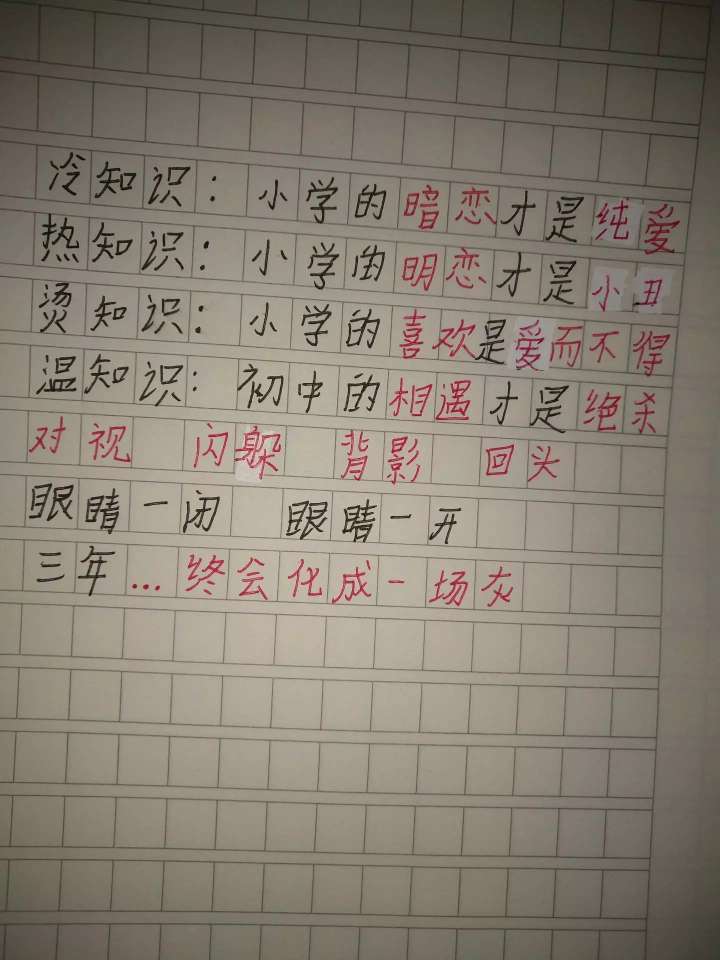 冷知识：小学的暗恋才是纯爱
热知识：小学的明恋才是小丑
烫知识：小学的喜欢是爱而不得
温知识：初中的相遇才是绝杀
对视 闪躲 背影 回头
眼睛一闭 眼睛一开
三年...终会化成一场灰